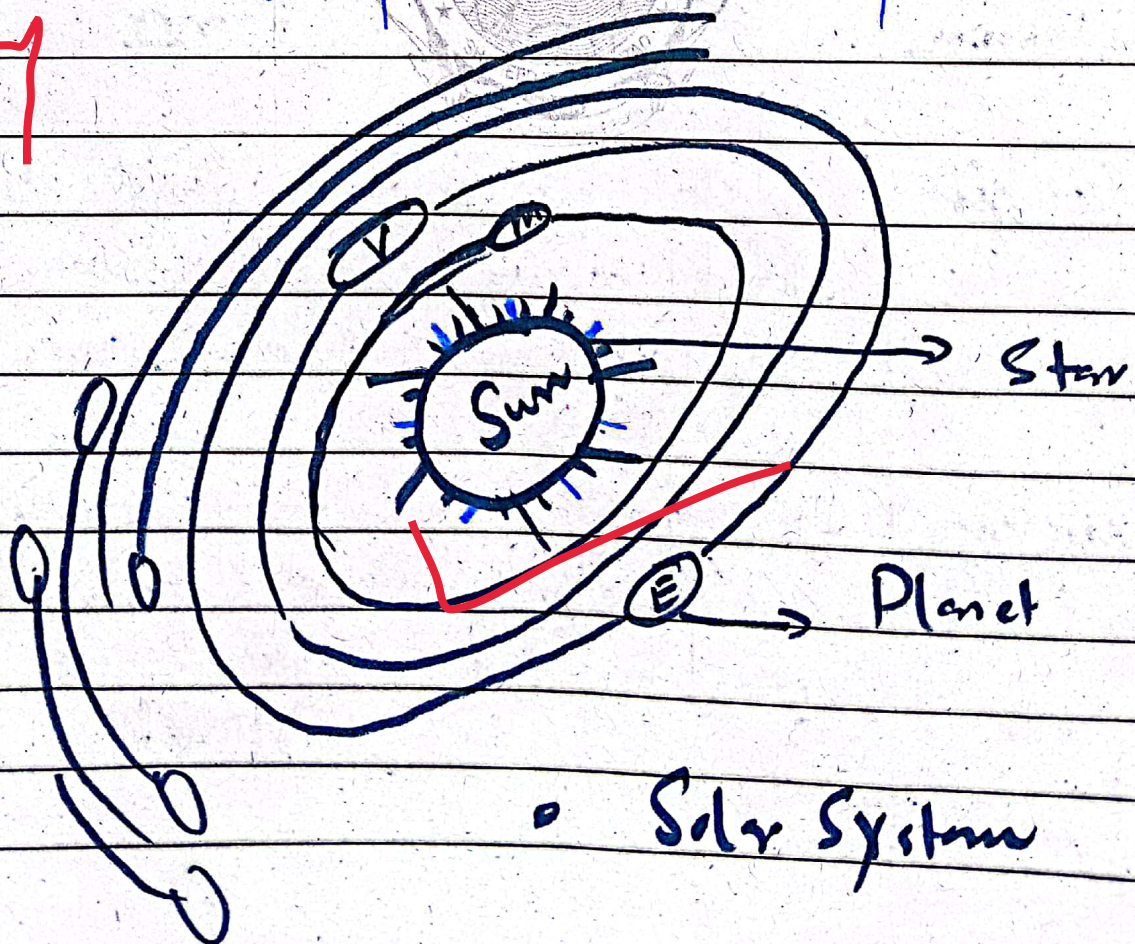 V
M
Sun
Star
E
Planet
Solar System